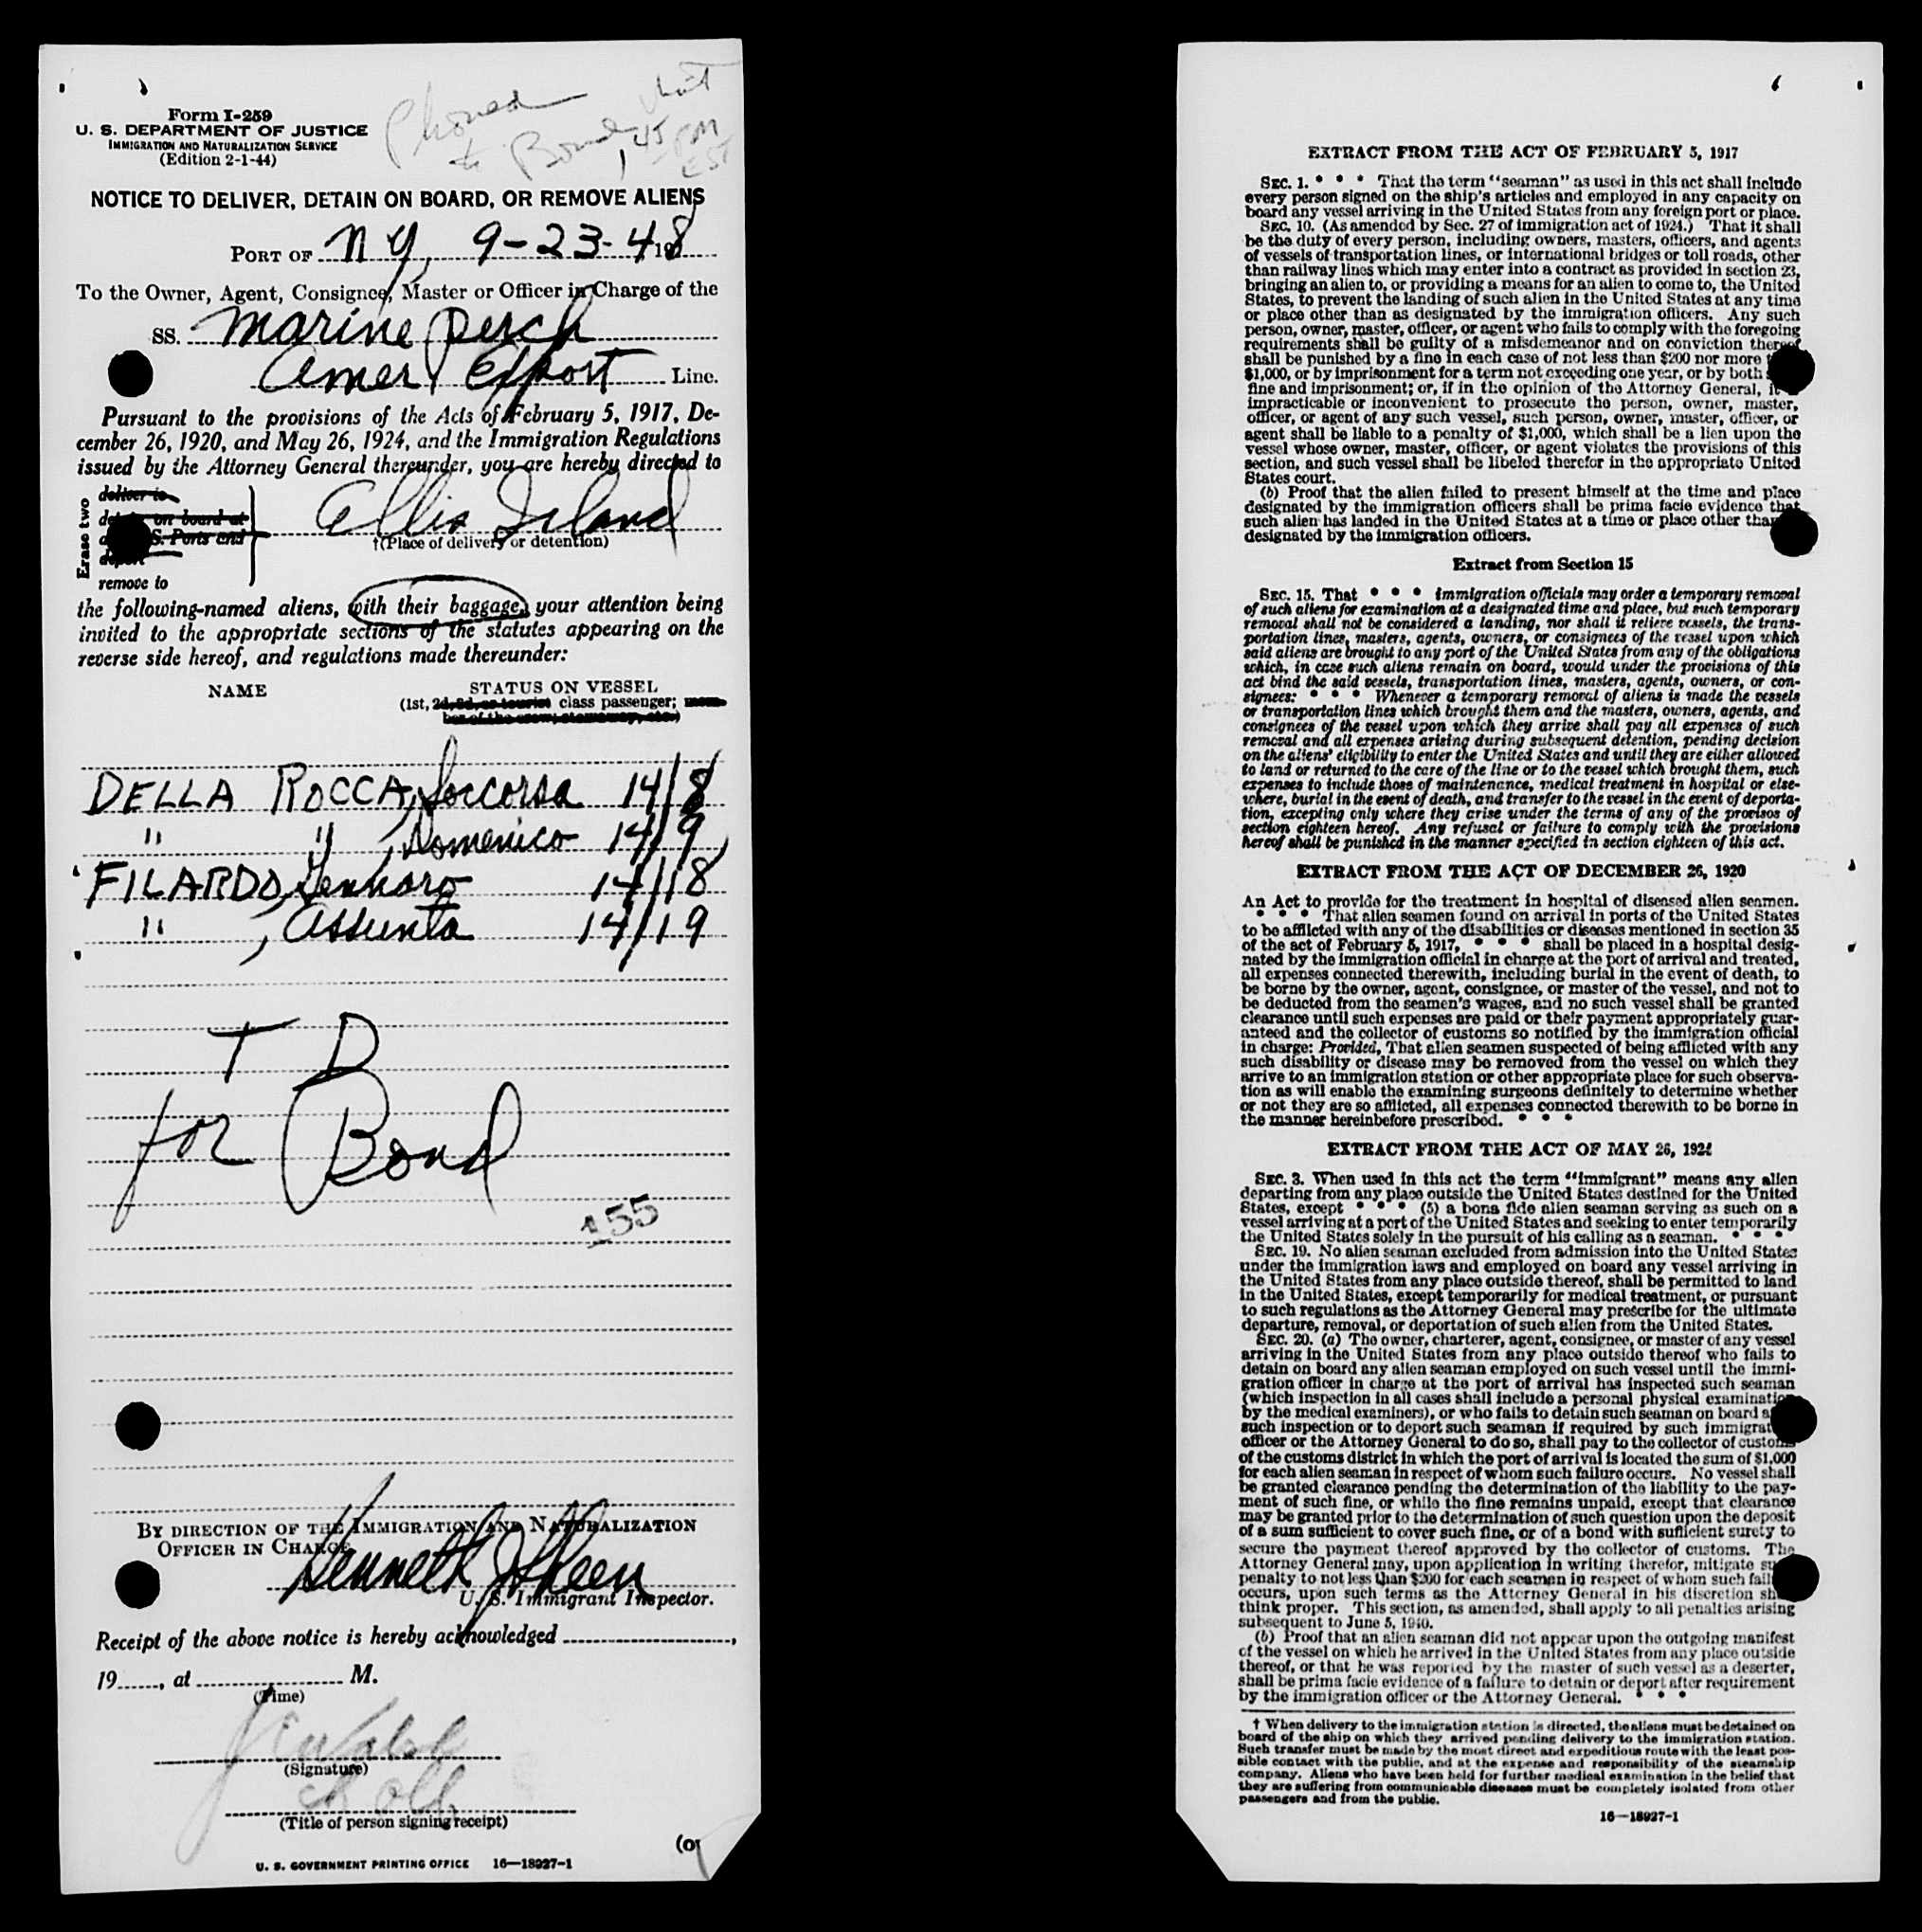 Phoned
to Bond 1 45 PM
EST
Form I-259
U. S. DEPARTMENT OF JUSTICE
IMMIGRATION AND NATURALIZATION SERVICE
(Edition 2-1-44)
NOTICE TO DELIVER, DETAIN ON BOARD, OR REMOVE ALIENS
PORT OF N Y, 9-23-48
To the Owner, Agent, Consignee, Master or Officer in Charge of the
SS. Marine Perch
Amer Export Line.
Pursuant to the provisions of the Acts of February 5, 1917, De-
cember 26, 1920, and May 26, 1924, and the Immigration Regulations
issued by the Attorney General thereunder, you are hereby directed to
Erase two
deliver to
on board at
S. Ports and
deport
remove to
Ellis Island
†(Place of delivery or detention)
the following-named aliens, with their baggage, your attention being
invited to the appropriate sections of the statutes appearing on the
reverse side hereof, and regulations made thereunder:
NAME STATUS ON VESSEL
(1st, 2d, 3d, or tourist class passenger; mem-
ber of the crew; stowaway, etc.)
DELLA ROCCA, Soccorsa 14/8
" " , Domenico 14/9
FILARDO, Gennaro 14/18
" , Assunta 14/19
T D
for Bond
155
BY DIRECTION OF THE IMMIGRATION AND NATURALIZATION
OFFICER IN CHARGE
Kenneth J Skeen
U. S. Immigrant Inspector.
Receipt of the above notice is hereby acknowledged ,
19 , at M.
(Time)
(Signature)
(Title of person signing receipt)
U. S. GOVERNMENT PRINTING OFFICE 16—18927-1
EXTRACT FROM THE ACT OF FEBRUARY 5, 1917
SEC. 1. * * * That the term "seaman" as used in this act shall include
every person signed on the ship's articles and employed in any capacity on
board any vessel arriving in the United States from any foreign port or place.
SEC. 10. (As amended by Sec. 27 of immigration act of 1924.) That it shall
be the duty of every person, including owners, masters, officers, and agents
of vessels of transportation lines, or international bridges or toll roads, other
than railway lines which may enter into a contract as provided in section 23,
bringing an alien to, or providing a means for an alien to come to, the United
States, to prevent the landing of such alien in the United States at any time
or place other than as designated by the immigration officers. Any such
person, owner, master, officer, or agent who fails to comply with the foregoing
requirements shall be guilty of a misdemeanor and on conviction thereof
shall be punished by a fine in each case of not less than $200 nor more
$1,000, or by imprisonment for a term not exceeding one year, or by both
fine and imprisonment; or, if in the opinion of the Attorney General, it
impracticable or inconvenient to prosecute the person, owner, master,
officer, or agent of any such vessel, such person, owner, master, officer, or
agent shall be liable to a penalty of $1,000, which shall be a lien upon the
vessel whose owner, master, officer, or agent violates the provisions of this
section, and such vessel shall be libeled therefor in the appropriate United
States court.
(b) Proof that the alien failed to present himself at the time and place
designated by the immigration officers shall be prima facie evidence that
such alien has landed in the United States at a time or place other than
designated by the immigration officers.
Extract from Section 15
SEC. 15. That * * * immigration officials may order a temporary removal
of such aliens for examination at a designated time and place, but such temporary
removal shall not be considered a landing, nor shall it relieve vessels, the trans-
portation lines, masters, agents, owners, or consignees of the vessel upon which
said aliens are brought to any port of the United States from any of the obligations
which, in case such aliens remain on board, would under the provisions of this
act bind the said vessels, transportation lines, masters, agents, owners, or con-
signees: * * * Whenever a temporary removal of aliens is made the vessels
or transportation lines which brought them and the masters, owners, agents, and
consignees of the vessel upon which they arrive shall pay all expenses of such
removal and all expenses arising during subsequent detention, pending decision
on the aliens' eligibility to enter the United States and until they are either allowed
to land or returned to the care of the line or to the vessel which brought them, such
expenses to include those of maintenance, medical treatment in hospital or else-
where, burial in the event of death, and transfer to the vessel in the event of deporta-
tion, excepting only where they arise under the terms of any of the provisos of
section eighteen hereof. Any refusal or failure to comply with the provisions
hereof shall be punished in the manner specified in section eighteen of this act.
EXTRACT FROM THE ACT OF DECEMBER 26, 1920
An Act to provide for the treatment in hospital of diseased alien seamen.
* * * That alien seamen found on arrival in ports of the United States
to be afflicted with any of the disabilities or diseases mentioned in section 35
of the act of February 5, 1917, * * * shall be placed in a hospital desig-
nated by the immigration official in charge at the port of arrival and treated,
all expenses connected therewith, including burial in the event of death, to
be borne by the owner, agent, consignee, or master of the vessel, and not to
be deducted from the seamen's wages, and no such vessel shall be granted
clearance until such expenses are paid or their payment appropriately guar-
anteed and the collector of customs so notified by the immigration official
in charge: Provided, That alien seamen suspected of being afflicted with any
such disability or disease may be removed from the vessel on which they
arrive to an immigration station or other appropriate place for such observa-
tion as will enable the examining surgeons definitely to determine whether
or not they are so afflicted, all expenses connected therewith to be borne in
the manner hereinbefore prescribed. * * *
EXTRACT FROM THE ACT OF MAY 26, 1924
SEC. 3. When used in this act the term "immigrant" means any alien
departing from any place outside the United States destined for the United
States, except * * * (5) a bona fide alien seaman serving as such on a
vessel arriving at a port of the United States and seeking to enter temporarily
the United States solely in the pursuit of his calling as a seaman. * * * *
SEC. 19. No alien seaman excluded from admission into the United States
under the immigration laws and employed on board any vessel arriving in
the United States from any place outside thereof, shall be permitted to land
in the United States, except temporarily for medical treatment, or pursuant
to such regulations as the Attorney General may prescribe for the ultimate
departure, removal, or deportation of such alien from the United States.
SEC. 20. (a) The owner, charterer, agent, consignee, or master of any vessel
arriving in the United States from any place outside thereof who fails to
detain on board any alien seaman employed on such vessel until the immi-
gration officer in charge at the port of arrival has inspected such seaman
(which inspection in all cases shall include a personal physical examination
by the medical examiners), or who fails to detain such seaman on board
such inspection or to deport such seaman if required by such
officer or the Attorney General to do so, shall pay to the collector of customs
of the customs district in which the port of arrival is located the sum of $1,000
for each alien seaman in respect of whom such failure occurs. No vessel shall
be granted clearance pending the determination of the liability to the pay-
ment of such fine, or while the fine remains unpaid, except that clearance
may be granted prior to the determination of such question upon the deposit
of a sum sufficient to cover such fine, or of a bond with sufficient surety to
secure the payment thereof approved by the collector of customs. The
Attorney General may, upon application in writing therefor, mitigate
penalty to not less than $200 for each seaman in respect of whom such
occurs, upon such terms as the Attorney General in his discretion
think proper. This section, as amended, shall apply to all penalties arising
subsequent to June 5, 1940.
(b) Proof that an alien seaman did not appear upon the outgoing manifest
of the vessel on which he arrived in the United States from any place outside
thereof, or that he was reported by the master of such vessel as a deserter,
shall be prima facie evidence of a failure to detain or deport after requirement
by the immigration officer or the Attorney General. * * *
† When delivery to the immigration station is directed, the aliens must be detained on
board of the ship on which they arrived pending delivery to the immigration station.
Such transfer must be made by the most direct and expeditious route with the least pos-
sible contact with the public, and at the expense and responsibility of the steamship
company. Aliens who have been held for further medical examination in the belief that
they are suffering from communicable diseases must be completely isolated from other
passengers and from the public.
16—18927-1